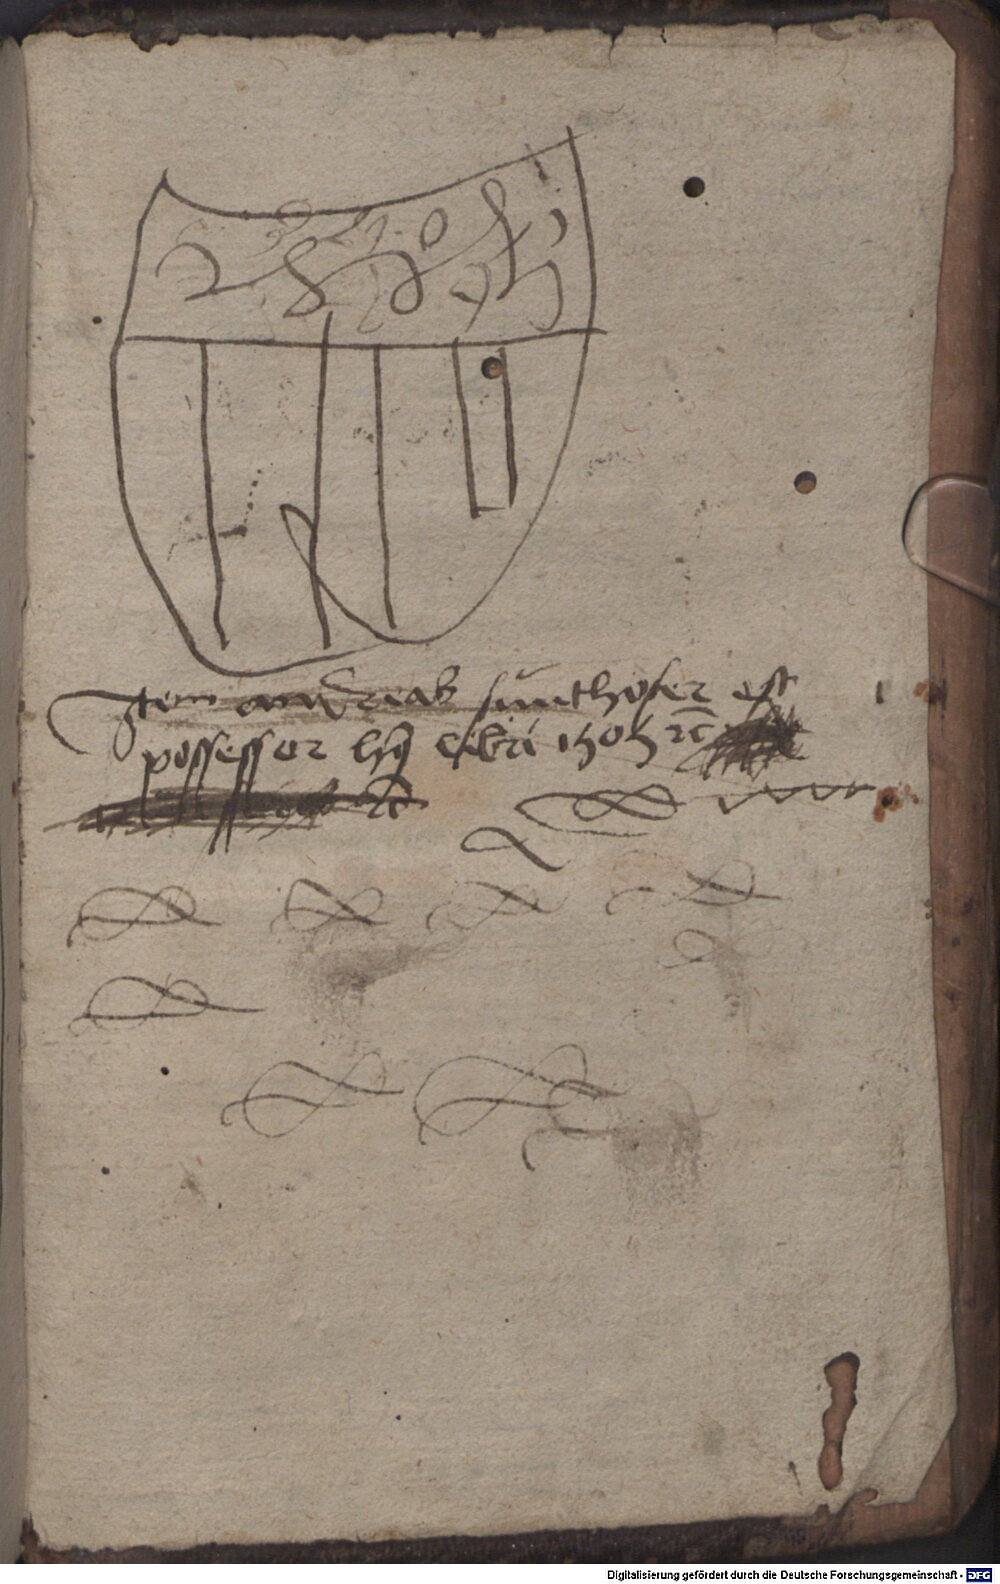 Item andreas sunthofer est
possessor hꝰ libri 1505 rc
rc
Digitalisierung gefördert durch die Deutsche Forschungsgemeinschaft - DFG